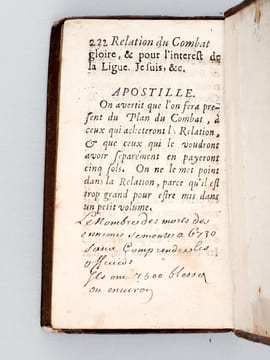 222 Relation du Combat
gloire, & pour l'interest de
la Ligue. Je suis, &c.
APOSTILLE.
On avertit que l'on fera pre-
sent du Plan du Combat, à
ceux qui acheteront la Relation,
& que ceux qui le voudront
avoir separément en payeront
cinq sols. On ne le met point
dans la Relation, parce qu'il est
trop grand pour estre mis dans
un petit volume.
Le Nombre des mores des
ennemis se monte a 6730
sans Comprendre les
officiers
Ils ont 7500 blesses
ou environ